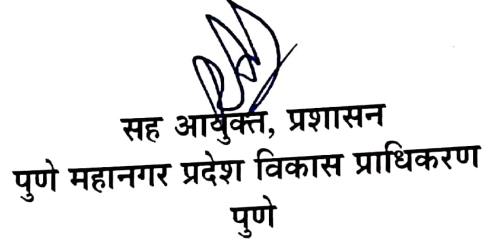 सह आयुक्त, प्रशासन
पुणे महानगर प्रदेश विकास प्राधिकरण
पुणे